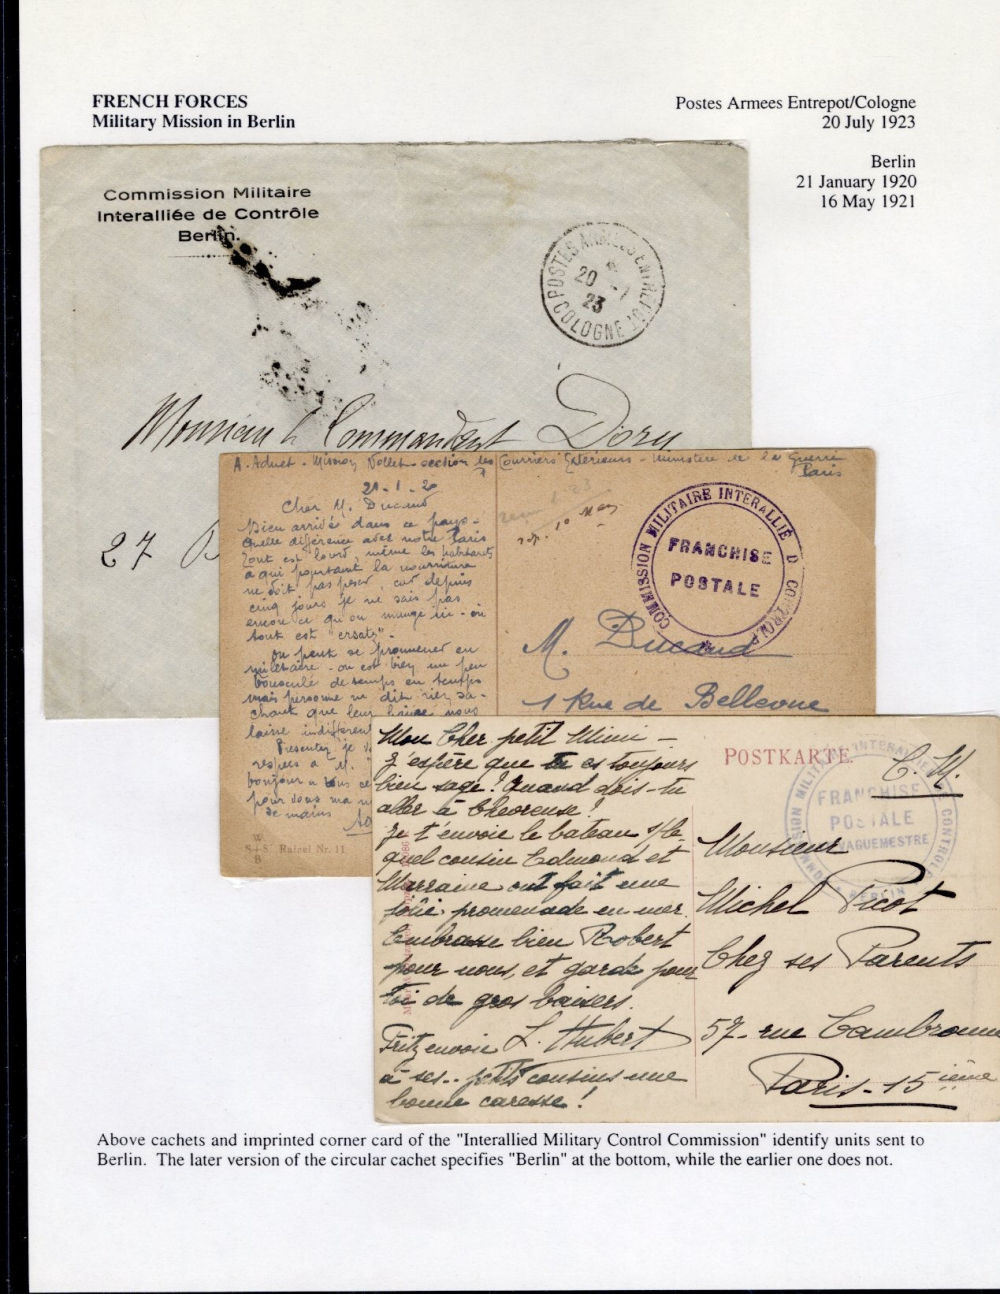 FRENCH FORCES
Military Mission in Berlin
Postes Armees Entrepot/Cologne
20 July 1923
Berlin
21 January 1920
16 May 1921
Commission Militaire
Interalliée de Contrôle
Berlin.
POSTES ARMEES ENTREPOT
20 7
23
COLOGNE
Monsieur le Commandant Dory
27
A. Adnet - Mission Nollet - section des Courriers Extérieurs - Ministère de la Guerre
Paris
21-1-20
Cher M. Ducaud
Bien arrivé dans ce pays -
Quelle différence avec notre Paris
Tout est lourd, même les habitants
à qui pourtant la nourriture
ne doit pas peser, car depuis
cinq jours je ne sais pas
encore ce qu'on mange ici - où
tout est "ersatz" -
On peut se promener en
militaire - on est bien un peu
bousculé de temps en temps
mais personne ne dit rien sa-
chant que leur haine nous
laisse indifférent
Présentez je
respects à M.
bonjour à tous
pour vous ma
de mains
COMMISSION MILITAIRE INTERALLIÉ D CONTROLE
FRANCHISE
POSTALE
M. Ducaud
1 Rue de Bellevue
W
S+S Rafael Nr. 11
B
Mon Cher petit Mimi -
J'espère que tu es toujours
bien sage! Quand dois-tu
aller à Chevreuse!
Je t'envoie le bateau s/le
quel cousin Edmond et
Marraine ont fait une
jolie promenade en mer.
Embrasse bien Robert
pour nous, et garde pour
toi de gros baisers.
Fritz envoie L. Hubert
à ses .. petits cousins une
bonne caresse!
POSTKARTE.
C. M.
COMMISSION MILITAIRE INTERALLIÉE DE CONTROLE
FRANCHISE
POSTALE
VAGUEMESTRE
BERLIN
Monsieur
Michel Picot
Chez ses Parents
57 - rue Cambronne
Paris - 15 ième
Above cachets and imprinted corner card of the "Interallied Military Control Commission" identify units sent to
Berlin. The later version of the circular cachet specifies "Berlin" at the bottom, while the earlier one does not.